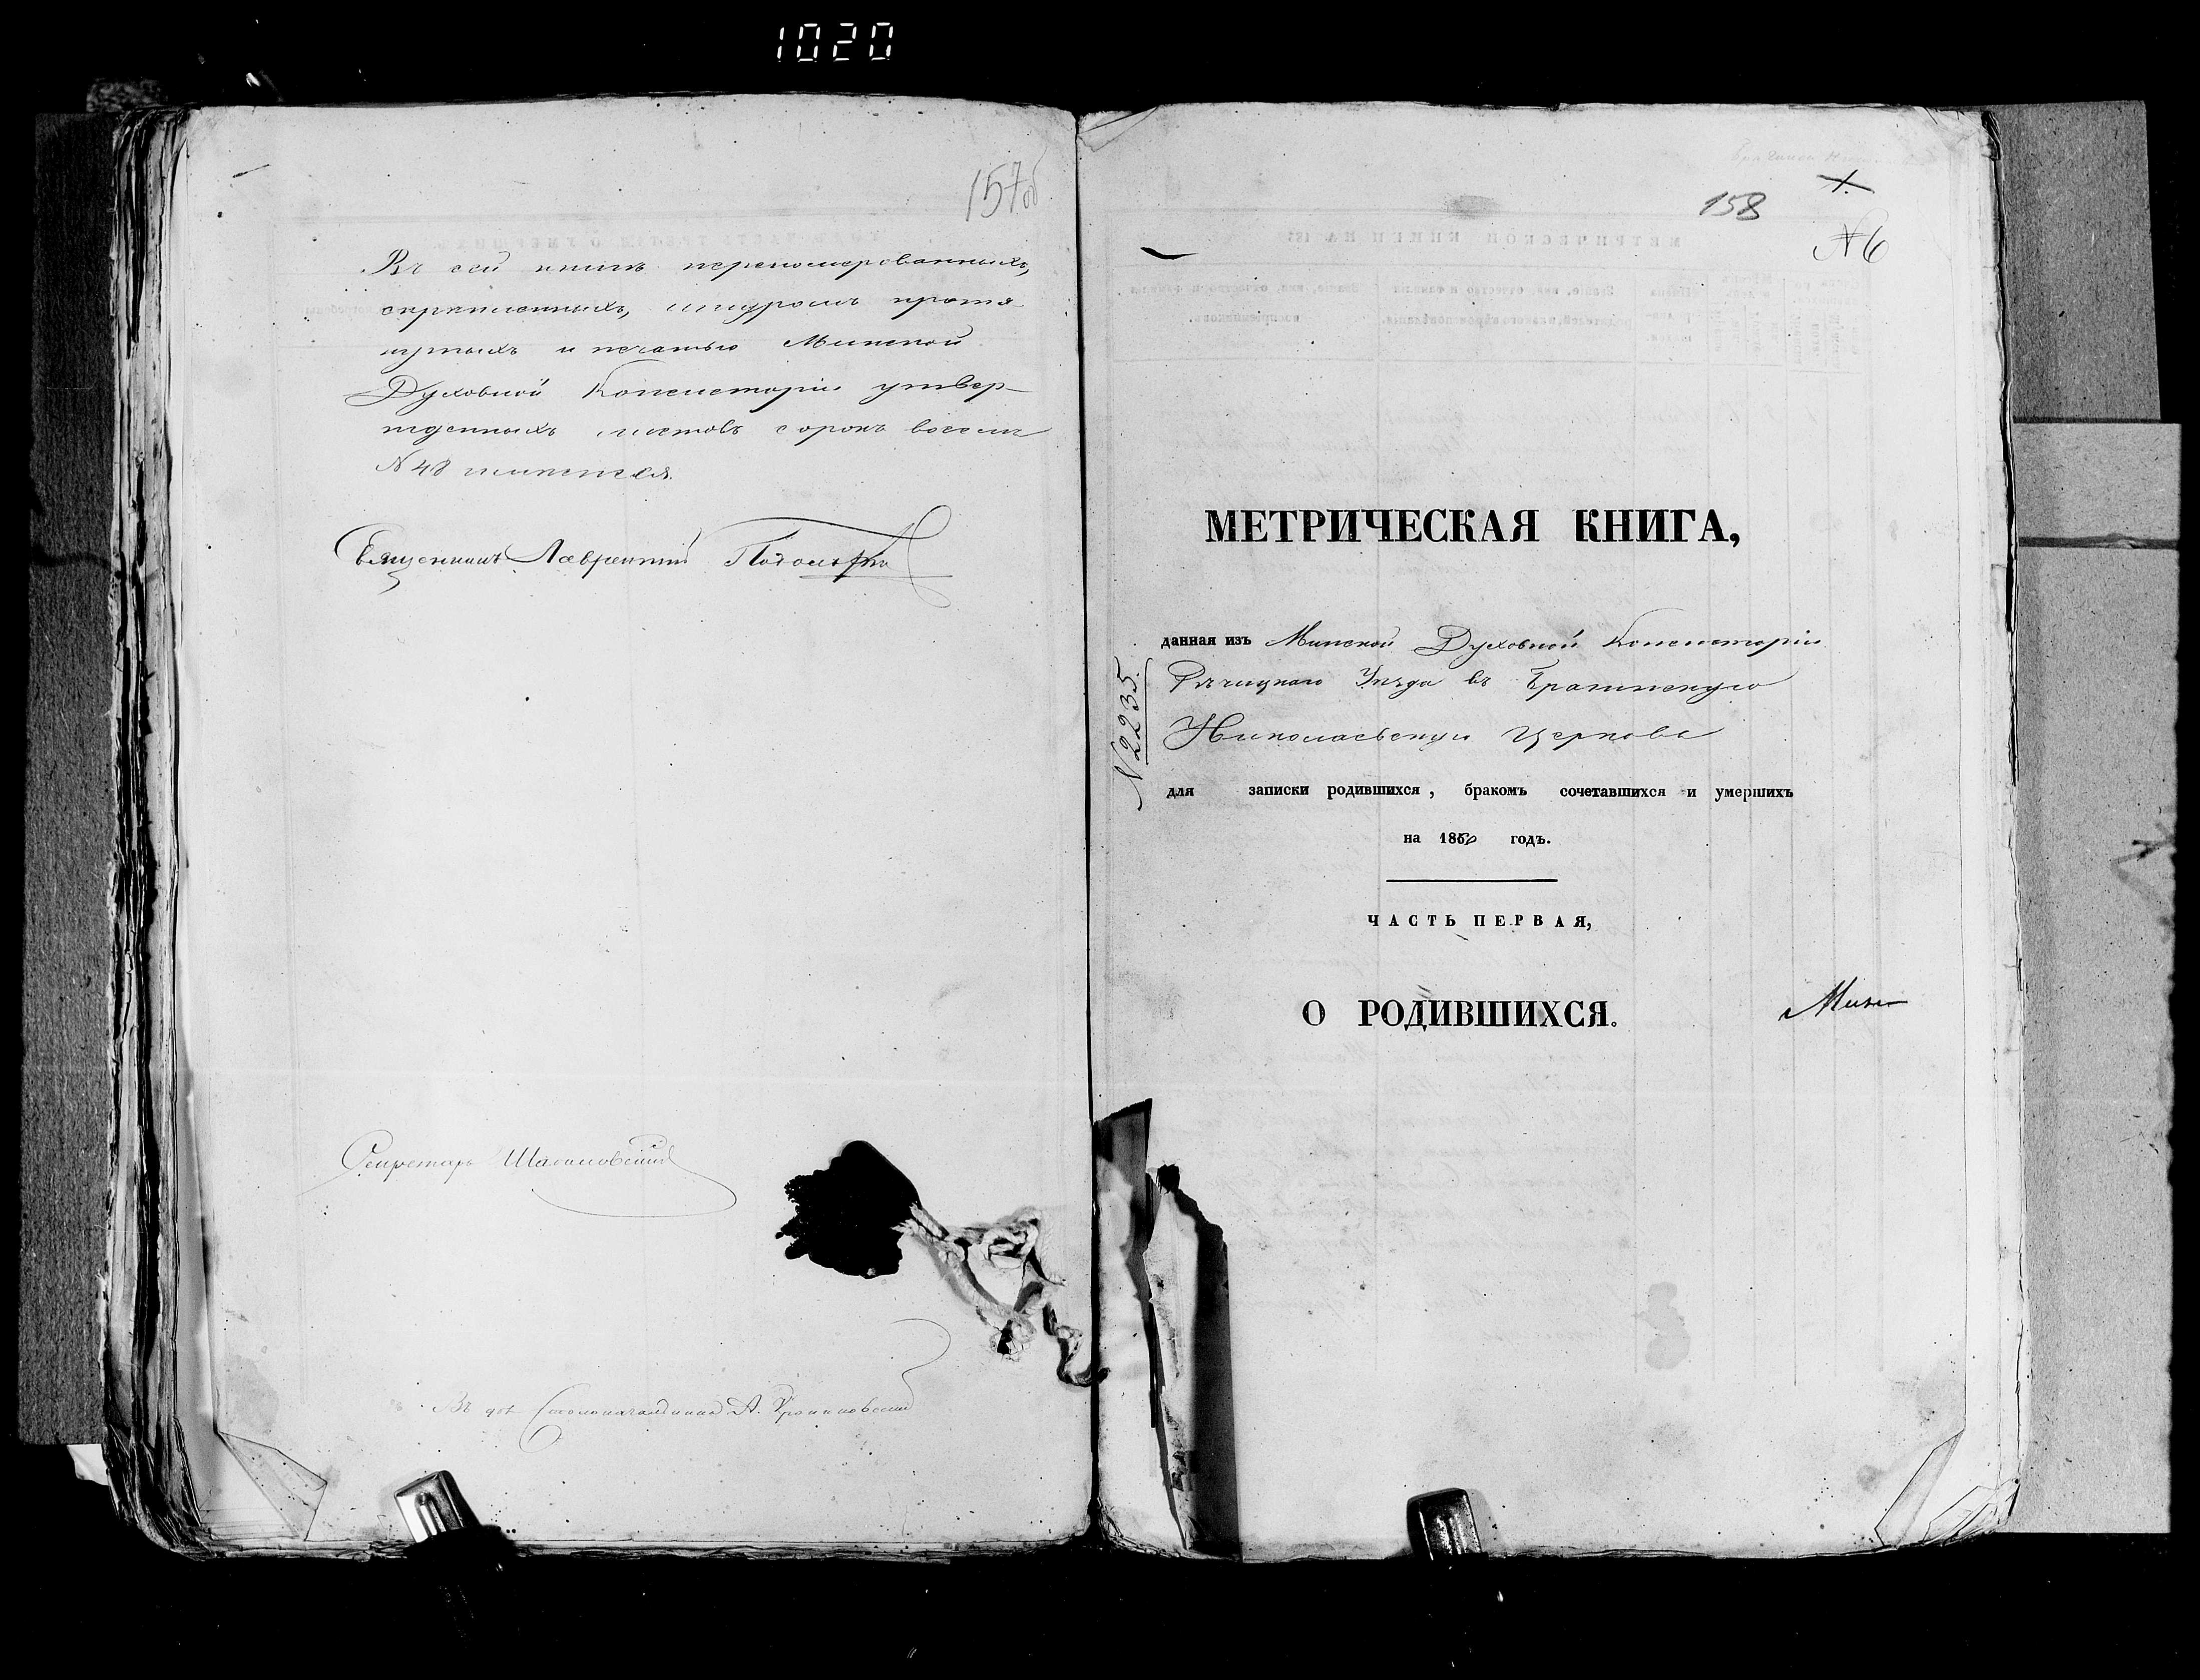 1020
157об
Въ сей книгѣ перенумерованныхъ,
скрѣпленныхъ, шнуромъ протя
нутыхъ и печатью Минской
Духовной Консисторіи утвер-
жденныхъ листовъ сорокъ восемь
N 48 числится.
Священникъ Лаврентій
Секретарь
Въ д. Столоначальника А.
158
1.
N 6
МЕТРИЧЕСКАЯ КНИГА,
данная изъ Минской Духовной Консисторіи
Рѣчицкаго Уѣзда въ Брагинскую
Николаевскую Церковь
N 2235.
для записки родившихся, бракомъ сочетавшихся и умершихъ
на 186 годъ.
ЧАСТЬ ПЕРВАЯ,
О РОДИВШИХСЯ.